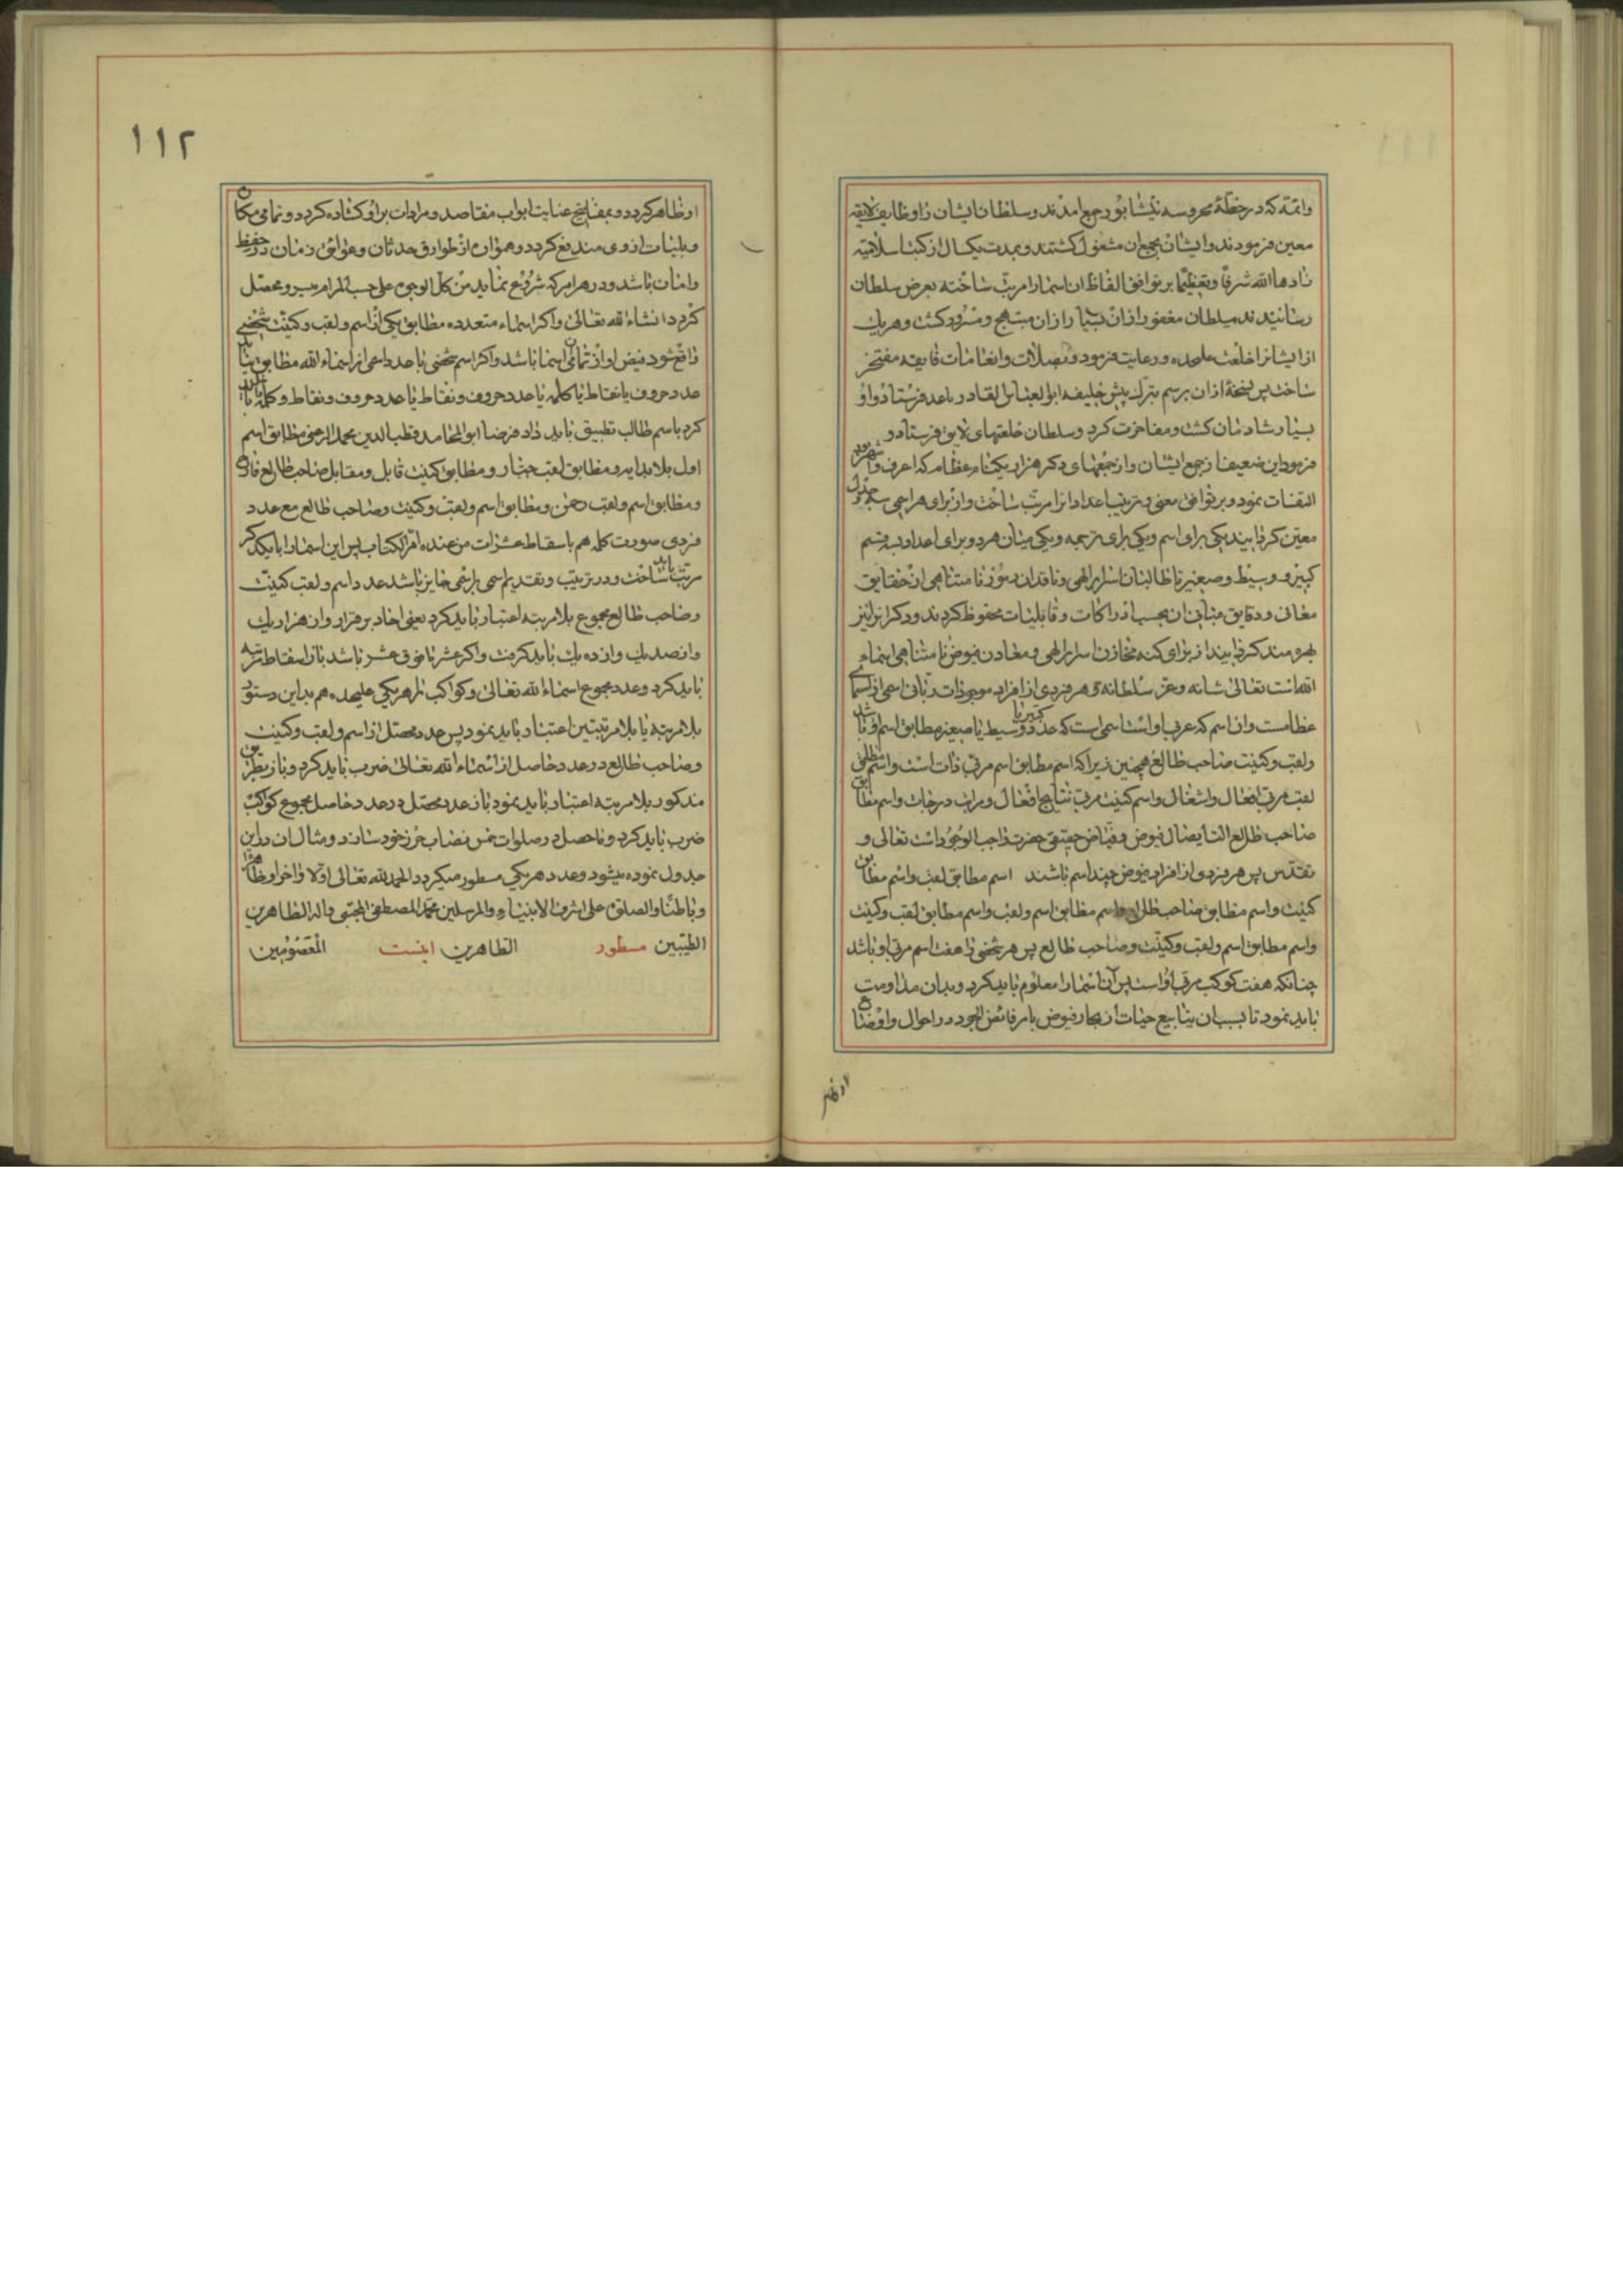 وائمّة که در خطّهٔ محروسه نیشابور جمع امدند و سلطان ایشان را وظایف لایقه
معین فرمودند و ایشان بجمع ان مشغول کشتند و بمدت یکسال از کتب اسلامیّه
زادها الله شرفًا و تعظیمًا بر توافق الفاظ ان اسما را مرتب ساخته بعرض سلطان
رسانیدند سلطان مغفور از ان بسیار از ان مبتهج و مسرور کشت و هر یک
از ایشانرا خلعت علیحده و رعایت فرمود و بصلات و انعامات فایقه مفتخر
ساخت پس نسخهٔ از ان برسم تبرک پیش خلیفه ابو العباس القادر باعد فرستاد و او
بسیار شادمان کشت و مفاخرت کرد و سلطان خلعتهای لایق فرستاد و
فرمود این ضعیف از جمع ایشان و از جمعهای دکر هزار یکنام عظام که اعرف و اشهر بود
التقات نمود و بر توافق معنی و ترتیب اعداد انرا مرتب ساخت و از برای هر اسمی سه جدول
معیّن کردانید یکی برای اسم و یکی برای ترجمه و یکی میان هر دو برای اعداد سه قسم
کبیر و وسیط و صغیر تا طالبان اسرار الهی و ناقدان رموز نامتناهی از حقایق
معانی و دقایق مبانی ان بحسب ادراکات و قابلیات محفوظ کردند و دکرانرا نیز
بهره مند کردانند از برای کنه مخازن اسرار الهی و معادن فیوض نامتناهی اسماء
الله است تعالی شانه و عز سلطانه و هر فردی از افراد موجودات ربانی اسمی از اسماء
عظامست و ان اسم که مربی اوست اسمی است که عدد کبیر یا وسیط یا صغیر مطابق اسم او باشد
و لقب و کنیت صاحب طالع همچنین زیرا که اسم مطابق اسم مربی ذات است و اسم مطابق
لقب مربی افعال و اشغال و اسم کنیت مربی نتایج افعال و مراتب درجات و اسم مطابق
صاحب طالع التایصال فیوض و فیاض حقیقی حضرت واجب الوجود است تعالی و
تقدّس پس هر فردی از افراد فیوض چند اسم باشند اسم مطابق لقب و اسم مطابق
کنیت و اسم مطابق صاحب طالع و اسم مطابق اسم و لقب و اسم مطابق لقب و کنیت
و اسم مطابق اسم و لقب و کنیّت و صاحب طالع پس هر شخصی را هفت اسم مربی او باشد
چنانکه هفت کوکب مربی اوست پس آن اسما را معلوم باید کرد و بدان مداومت
باید نمود تا بسبب ان ینابیع حیات از بحار فیوض بامر فائض الجود در احوال و اوضاع
۱۱۲
او ظاهر کردد و بمفاتیح عنایت ابواب مقاصد و مرادات بر او کشاده کردد و تمامی مکان
و بلیات از وی مندفع کردد و هموان از طوارق حدثان و عوائق زمان در حفظ
و امان باشد و در هر امر که شروع نماید من کل الوجوه علی حسب المرام میسر و محصّل
کردد انشاء الله تعالی و اکر اسماء متعدده مطابق یکی از اسم و لقب و کنیّت شخصی
واقع شود فیض او از تمامی ان اسما باشد و اکر اسم شخصی با عدد اسمی از اسماء الله مطابق نیاید
عدد حروف با نقاط یا کلمه یا عدد حروف و نقاط یا عدد حروف و نقاط و کلمه باید
کرد باسم طالب تطبیق باید داد فرضا ابوالمحامد قطب الدین محمد الرضی مطابق اسم
اول بلا بدایه و مطابق لقب جبّار و مطابق کنیت قابل و مقابل صاحب طالع
و مطابق اسم و لقب رحمن و مطابق اسم و لقب و کنیت و صاحب طالع مع عدد
فردی صورت کله هم باسقاط عشرات من عنده ام الکتاب پس این اسما را با یکدکر
مرتب باید ساخت و در ترتیب و تقدیم اسمی بر اسمی جایز باشد عدد اسم و لقب کنیّت
و صاحب طالع مجموع بلا مرتبه اعتبار باید کرد یعنی احاد بر قرار و از هزار یک
و از صد یک و از ده یک باید کرفت و اکر عشر یا فوق عشر باشد باز اسقاط مرتبه
باید کرد و عدد مجموع اسماء الله تعالی و کواکب را هر یکی علیحده هم بداین دستور
بلا مرتبه یا بلا مرتبتین اعتبار باید نمود پس عدد محصّل از اسم و لقب و کنیّت
و صاحب طالع در عدد حاصل از اسماء الله تعالی ضرب باید کرد و باز بطریق
مذکور بلا مرتبه اعتبار باید نمود باز عدد محصّل در عدد حاصل مجموع کواکب
ضرب باید کرد و ما حصل در صلوات خمس نصاب حرز خود سازد و مثال ان در این
جدول نموده میشود و عدد هر یکی مسطور میکردد الحمد لله تعالی اوّلا و اخرا و ظاهرًا
و باطنًا و الصلوة علی اشرف الانبیاء و المرسلین محمّد المصطفی المجتبی و اله الطاهرین
الطیّبین مسطور الظاهرین اینست المعصومین